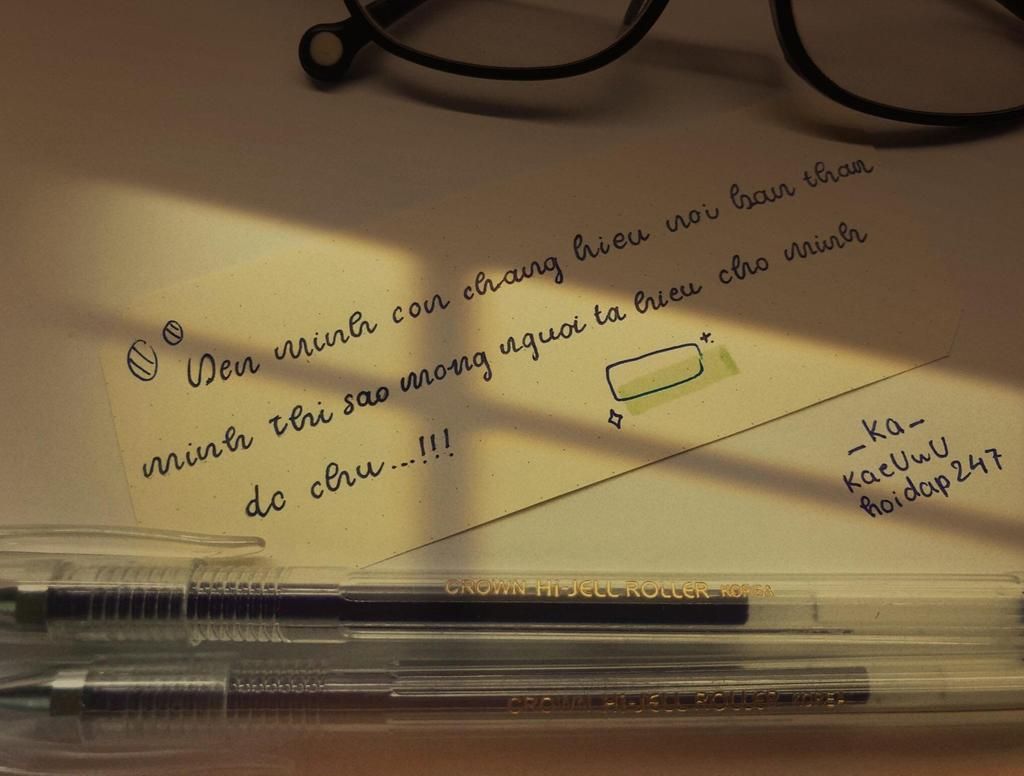 Den minh con chang hieu noi ban than
minh thi sao mong nguoi ta hieu cho minh
dc chu...!!!
_Ka_
KaeUwU
hoidap247
CROWN Hi-JELL ROLLER KOREA
CROWN Hi-JELL ROLLER KOREA